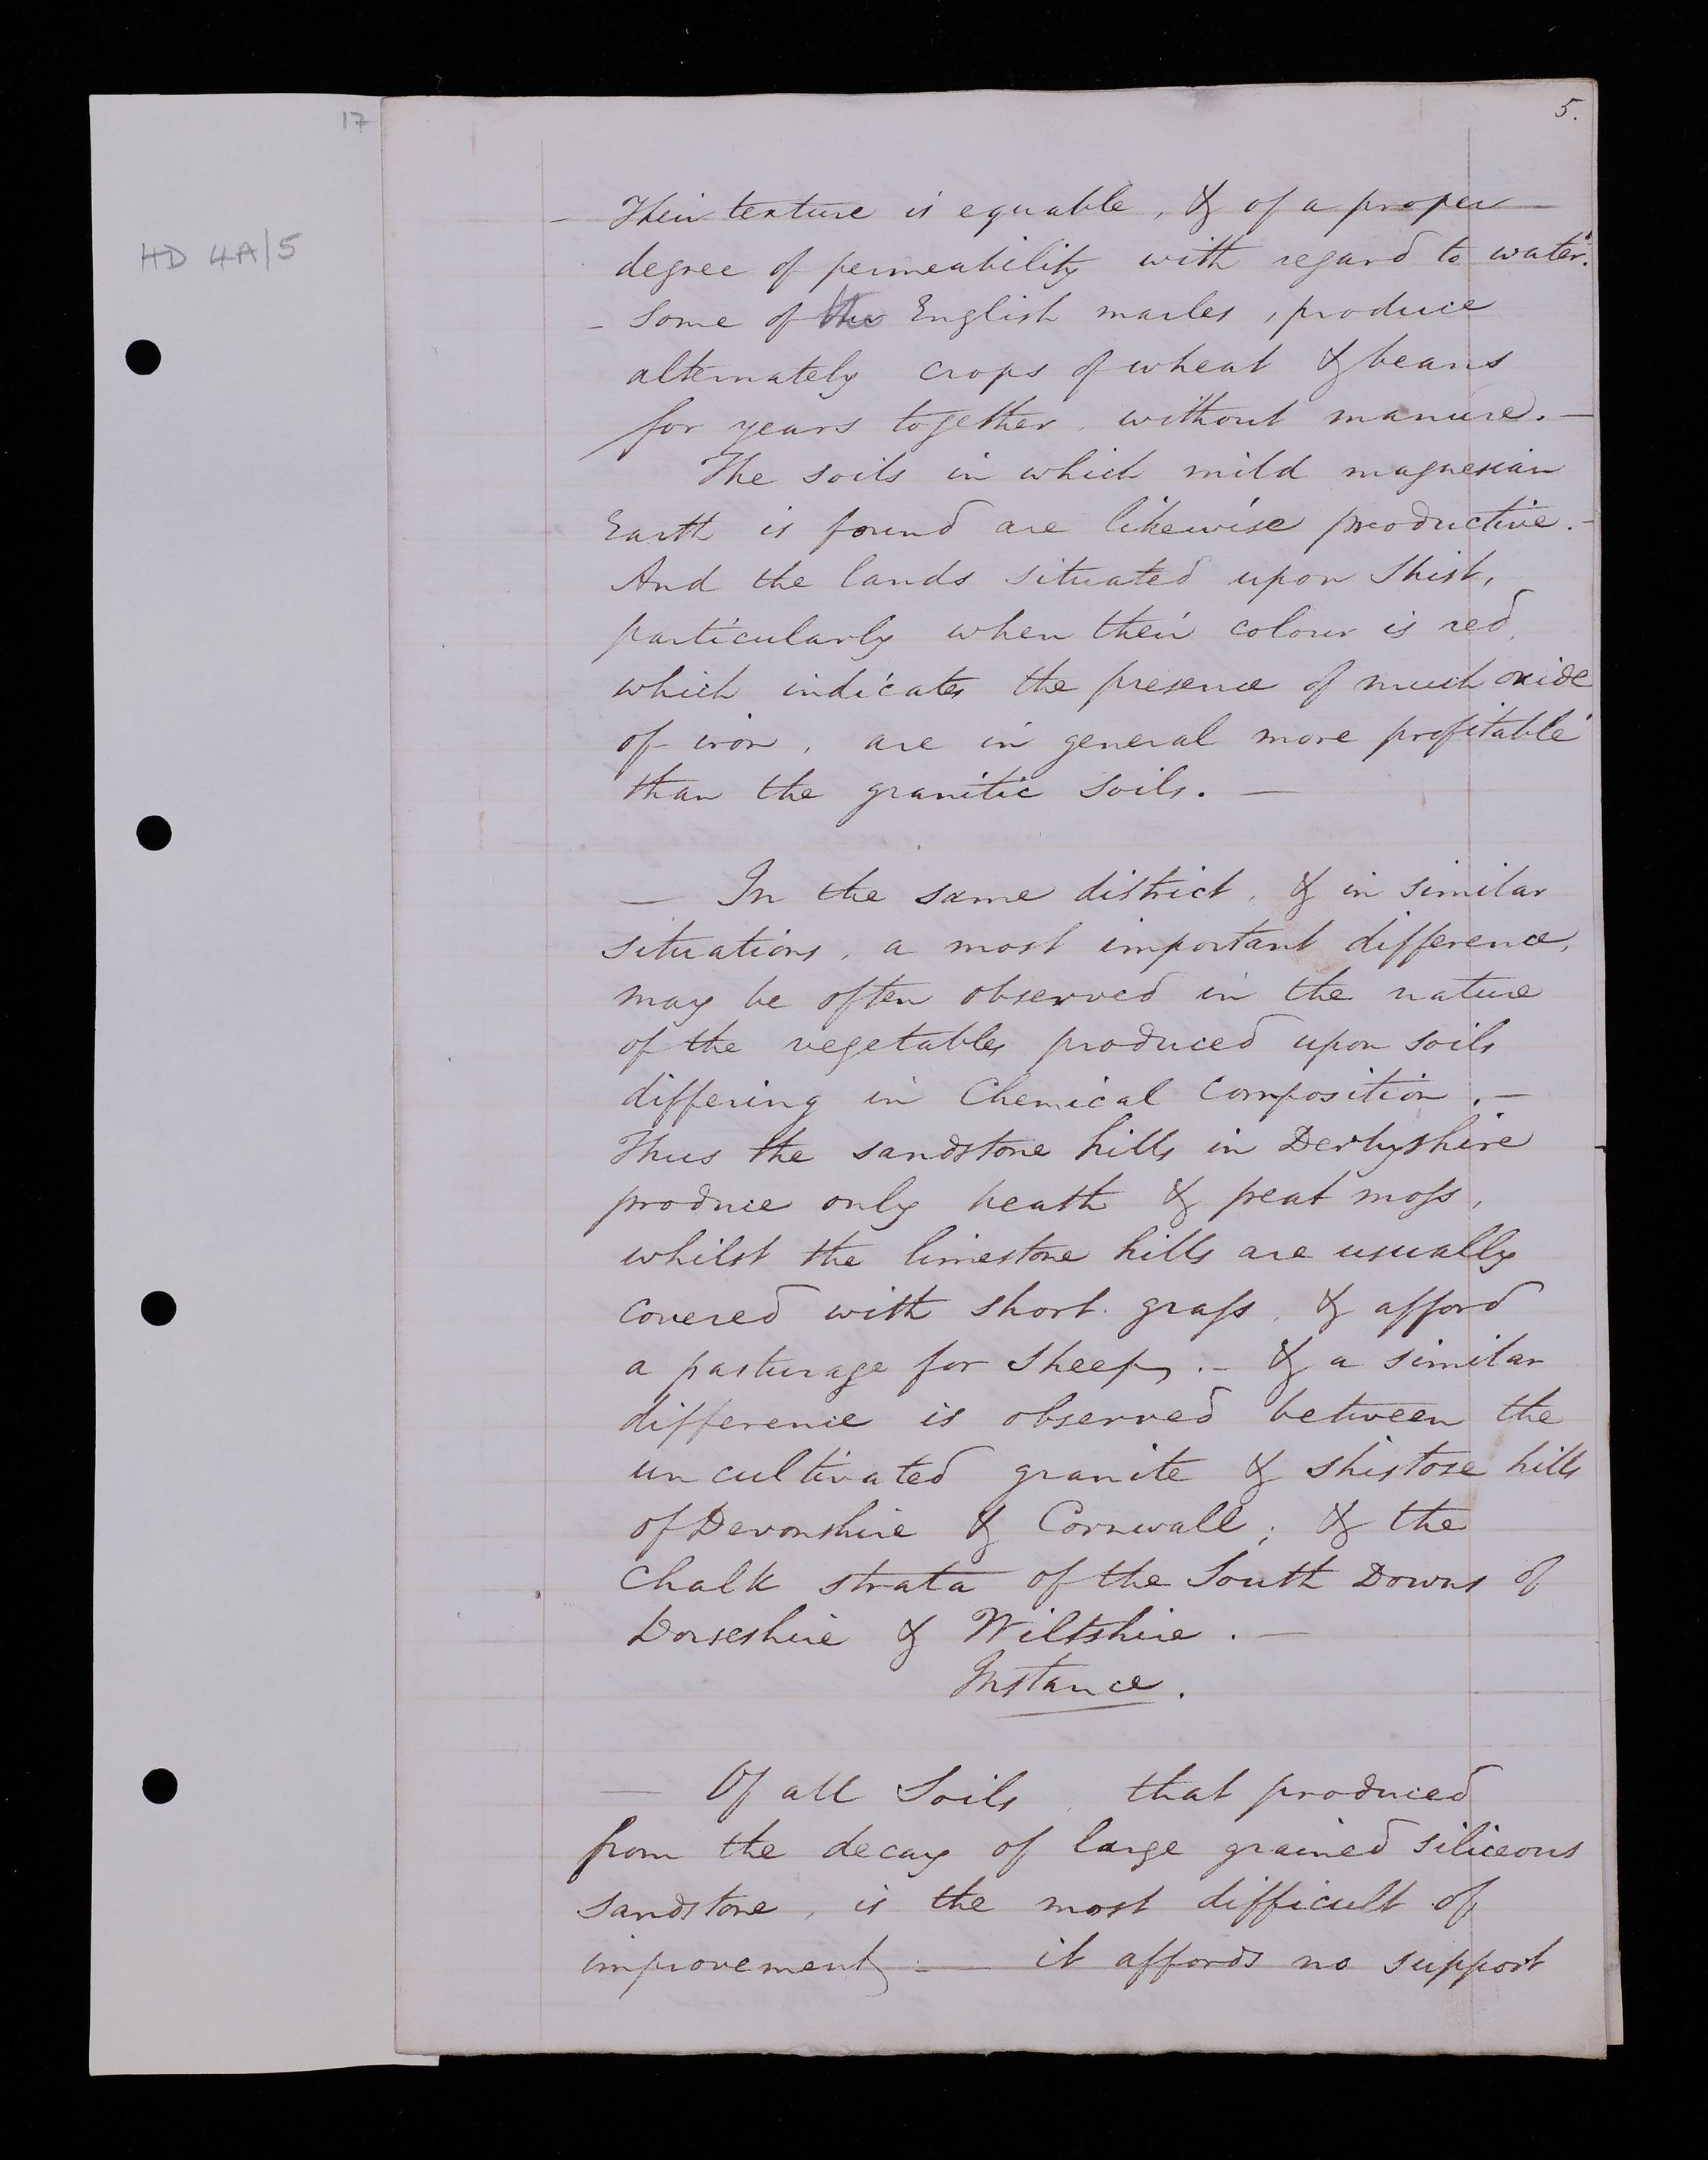 17
5.
HD 4A/5
– Their texture is equable, & of a proper –
degree of permeability with regard to water.
– Some of the English marles, produce
alternately crops of wheat & beans
for years together without manure. –
The soils in which mild magnesian
Earth is found are likewise productive. –
And the lands situated upon Shist,
particularly when their colour is red,
which indicates the presence of much oxide
of iron, are in general more profitable
than the granitic Soils. –
– In the same district, & in similar
situations, a most important difference,
may be often observed in the nature
of the vegetables produced upon soils
differing in Chemical Composition. –
Thus the sandstone hills in Derbyshire
produce only heath & peat moſs,
whilst the limestone hills are usually
covered with short graſs, & afford
a pasturage for Sheep, . – & a similar
difference is observed between the
uncultivated granite & shistose hills
of Devonshire & Cornwall; & the
Chalk strata of the South Downs of
Dorseshire & Wiltshire. –
Instance.
– Of all Soils, that produced
from the decay of large grained siliceous
sandstone, is the most difficult of
improvement, – it affords no support